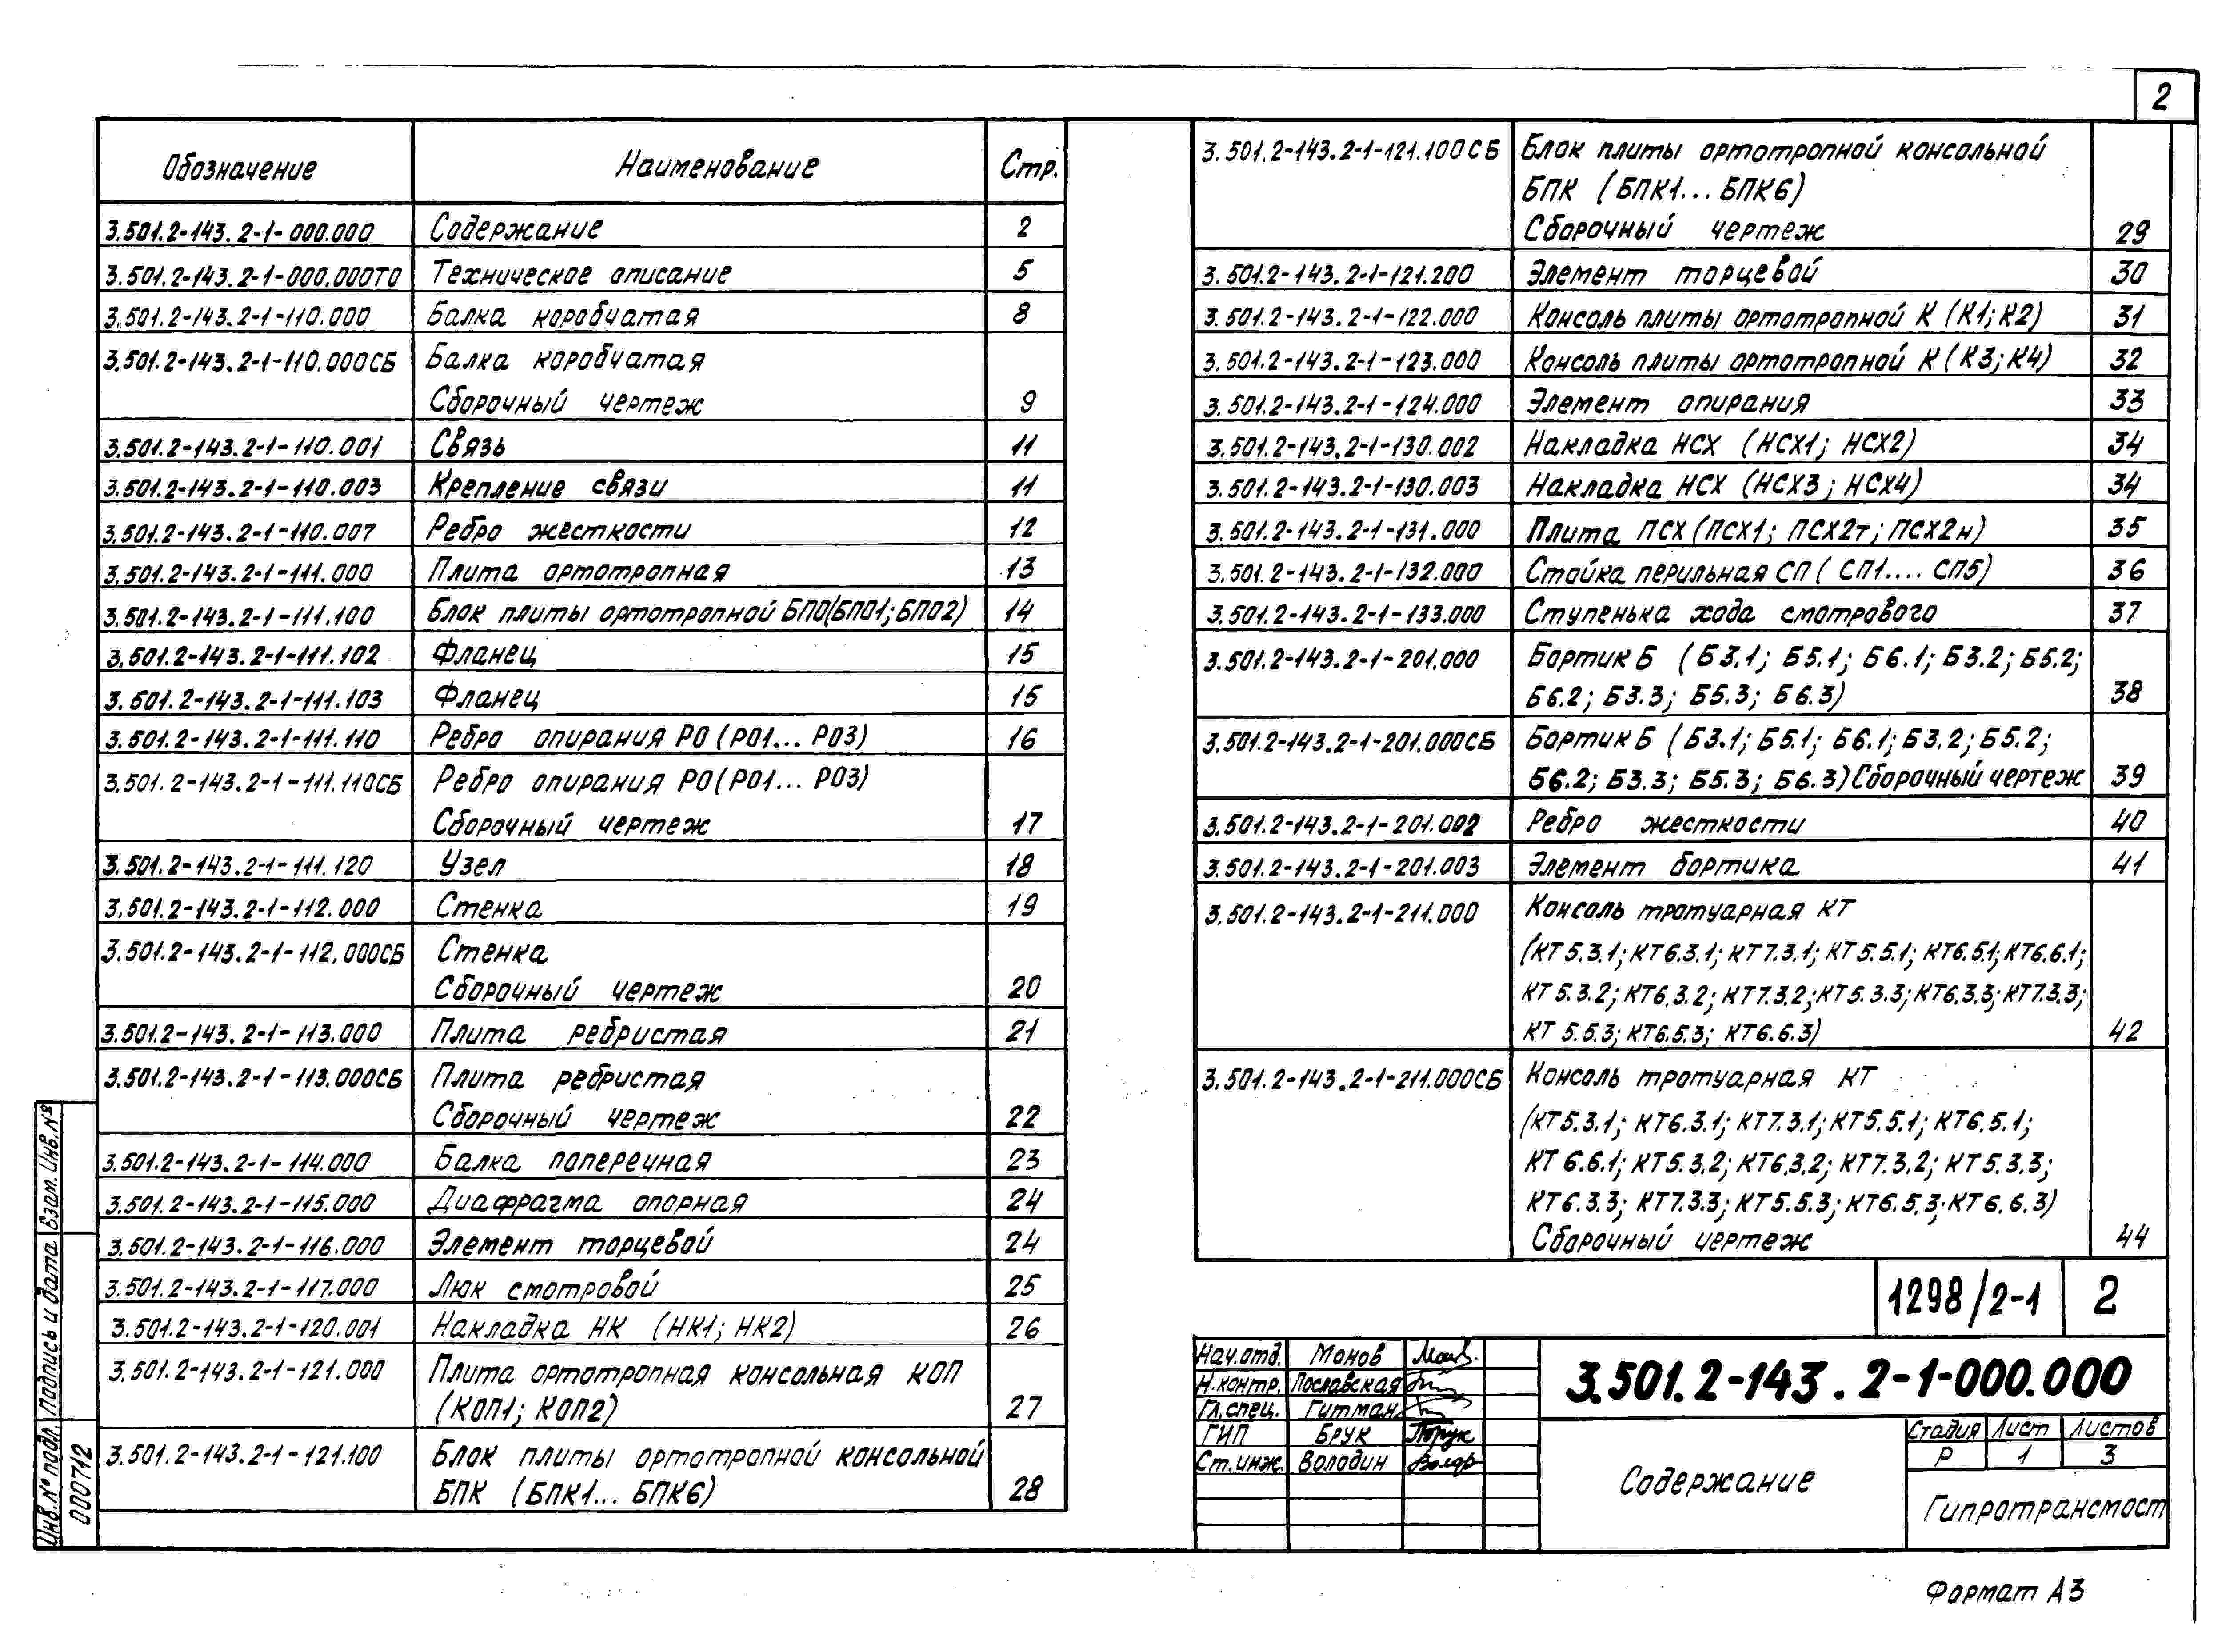 2
Обозначение Наименование Стр.
3.501.2-143.2-1-000.000 Содержание 2
3.501.2-143.2-1-000.000ТО Техническое описание 5
3.501.2-143.2-1-110.000 Балка коробчатая 8
3.501.2-143.2-1-110.000СБ Балка коробчатая
Сборочный чертеж 9
3.501.2-143.2-1-110.001 Связь 11
3.501.2-143.2-1-110.003 Крепление связи 11
3.501.2-143.2-1-110.007 Ребро жесткости 12
3.501.2-143.2-1-111.000 Плита ортотропная 13
3.501.2-143.2-1-111.100 Блок плиты ортотропной БПО(БПО1; БПО2) 14
3.501.2-143.2-1-111.102 Фланец 15
3.501.2-143.2-1-111.103 Фланец 15
3.501.2-143.2-1-111.110 Ребро опирания РО (РО1... РО3) 16
3.501.2-143.2-1-111.110СБ Ребро опирания РО (РО1... РО3)
Сборочный чертеж 17
3.501.2-143.2-1-111.120 Узел 18
3.501.2-143.2-1-112.000 Стенка 19
3.501.2-143.2-1-112.000СБ Стенка
Сборочный чертеж 20
3.501.2-143.2-1-113.000 Плита ребристая 21
3.501.2-143.2-1-113.000СБ Плита ребристая
Сборочный чертеж 22
3.501.2-143.2-1-114.000 Балка поперечная 23
3.501.2-143.2-1-115.000 Диафрагма опорная 24
3.501.2-143.2-1-116.000 Элемент торцевой 24
3.501.2-143.2-1-117.000 Люк смотровой 25
3.501.2-143.2-1-120.001 Накладка НК (НК1; НК2) 26
3.501.2-143.2-1-121.000 Плита ортотропная консольная КОП
(КОП1; КОП2) 27
3.501.2-143.2-1-121.100 Блок плиты ортотропной консольной
БПК (БПК1... БПК6) 28
3.501.2-143.2-1-121.100СБ Блок плиты ортотропной консольной
БПК (БПК1... БПК6)
Сборочный чертеж 29
3.501.2-143.2-1-121.200 Элемент торцевой 30
3.501.2-143.2-1-122.000 Консоль плиты ортотропной К (К1; К2) 31
3.501.2-143.2-1-123.000 Консоль плиты ортотропной К (К3; К4) 32
3.501.2-143.2-1-124.000 Элемент опирания 33
3.501.2-143.2-1-130.002 Накладка НСХ (НСХ1; НСХ2) 34
3.501.2-143.2-1-130.003 Накладка НСХ (НСХ3; НСХ4) 34
3.501.2-143.2-1-131.000 Плита ПСХ (ПСХ1; ПСХ2т; ПСХ2н) 35
3.501.2-143.2-1-132.000 Стойка перильная СП ( СП1.... СП5) 36
3.501.2-143.2-1-133.000 Ступенька хода смотрового 37
3.501.2-143.2-1-201.000 Бортик Б (Б3.1; Б5.1; Б6.1; Б3.2; Б5.2;
Б6.2; Б3.3; Б5.3; Б6.3) 38
3.501.2-143.2-1-201.000СБ Бортик Б (Б3.1; Б5.1; Б6.1; Б3.2; Б5.2;
Б6.2; Б3.3; Б5.3; Б6.3) Сборочный чертеж 39
3.501.2-143.2-1-201.002 Ребро жесткости 40
3.501.2-143.2-1-201.003 Элемент бортика 41
3.501.2-143.2-1-211.000 Консоль тротуарная КТ
(КТ5.3.1; КТ6.3.1; КТ7.3.1; КТ5.5.1; КТ6.5.1; КТ6.6.1;
КТ5.3.2; КТ6.3.2; КТ7.3.2; КТ5.3.3; КТ6.3.3; КТ7.3.3;
КТ 5.5.3; КТ6.5.3; КТ6.6.3) 42
3.501.2-143.2-1-211.000СБ Консоль тротуарная КТ
(КТ5.3.1; КТ6.3.1; КТ7.3.1; КТ5.5.1; КТ6.5.1;
КТ 6.6.1; КТ5.3.2; КТ6.3.2; КТ7.3.2; КТ5.3.3;
КТ6.3.3; КТ7.3.3; КТ5.5.3; КТ6.5.3; КТ6.6.3)
Сборочный чертеж 44
1298/2-1 2
Нач.отд. Монов
Н.контр. Пославская
Гл.спец. Гитман
ГИП Брук
Ст.инж. Володин
3.501.2-143.2-1-000.000
Содержание
Стадия Лист Листов
Р 1 3
Гипротрансмост
Формат А3
Инв.№ подл. Подпись и дата Взам. Инв.№
000712